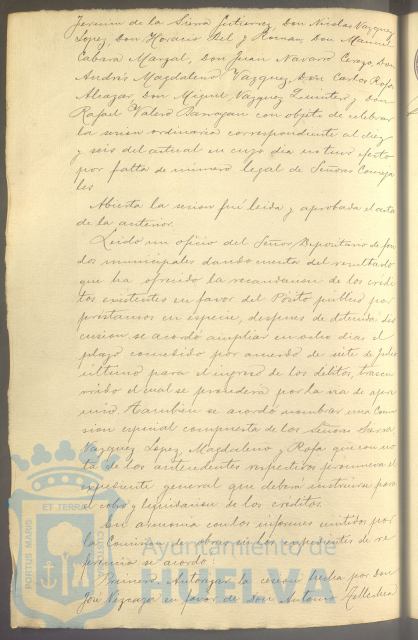 Jerónimo de la Sierra Gutierrez, Don Nicolas Vazquez
Lopez, Don Horacio Bel y Roman, Don Manuel
Cabara Margal, Don Juan Navarro Cerezo, Don
Andrés Magdaleno Vazquez, Don Carlos Rofa
Alcazar, Don Miguel Vazquez Quintero y Don
Rafael Valero Barragan con objeto de celebrar
la sesion ordinaria correspondiente al diez
y seis del actual en cuyo dia no tuvo efecto
por falta de número legal de Señores Conceja
les
Abierta la sesion fué leida y aprobada el acta
de la anterior.
Leido un oficio del Señor Depositario de fon
dos municipales dando cuenta del resultado
que ha ofrecido la recaudacion de los credi
tos existentes en favor del Pósito publico por
prestamos en especie, despues de detenida dis
cusion se acordó ampliar en ocho dias el
plazo concedido por acuerdo de siete de Julio
ultimo para el ingreso de los debitos, trascu
rrido el cual se procederá por la via de apre
mio. Tambien se acordó nombrar una Comi
sion especial compuesta de los Señores Sierra
Vazquez Lopez, Magdaleno y Rofa que con vis
ta de los antecedentes respectivos promueva el
expediente general que deberá instruirse para
el cobro y liquidacion de los creditos.
En armonia con los informes emitidos por
la Comision de obras en los expedientes de re
ferencia se acordó:
Primero. Autorizar la cesion hecha por Don
José Vizcaya en favor de Don Antonio
PORTUS MARIS
ET TERRAE
CUSTODIA
Ayuntamiento de
HUELVA